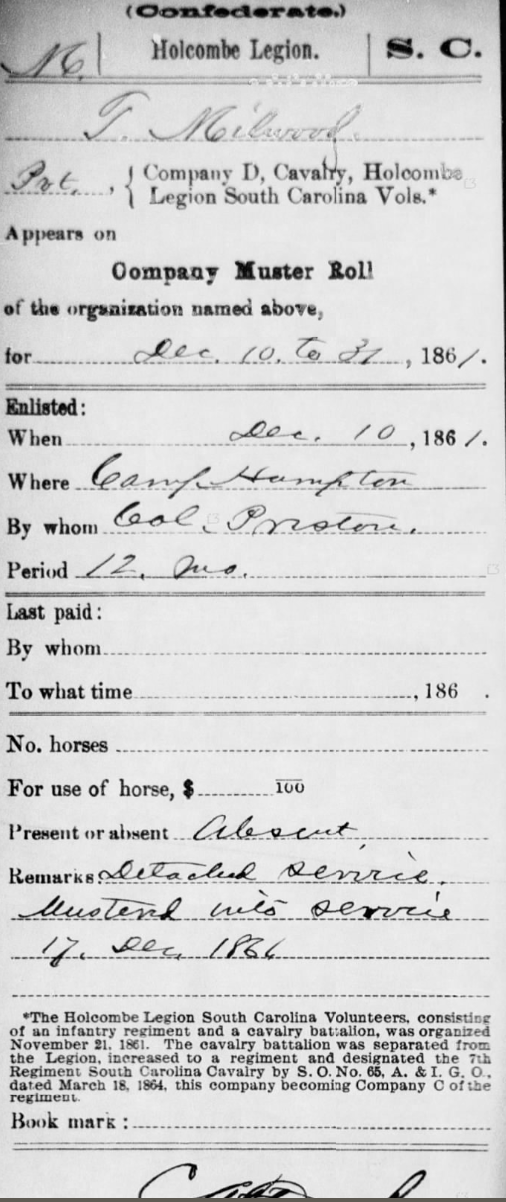 (Confederate.)
M | Holcombe Legion. | S. C.
T. Milwood.
Pvt., { Company D, Cavalry, Holcombe
Legion South Carolina Vols.*
Appears on
Company Muster Roll
of the organization named above,
for Dec. 10. to 31, 1861.
Enlisted:
When Dec. 10, 1861.
Where Camp Hampton
By whom Col. Preston.
Period 12. mo.
Last paid:
By whom
To what time , 186 .
No. horses
For use of horse, $ 100
Present or absent Absent
Remarks: Detached service.
Mustered into service
17. Dec. 1861
*The Holcombe Legion South Carolina Volunteers, consisting
of an infantry regiment and a cavalry battalion, was organized
November 21, 1861. The cavalry battalion was separated from
the Legion, increased to a regiment and designated the 7th
Regiment South Carolina Cavalry by S. O. No. 65, A. & I. G. O.,
dated March 18, 1864, this company becoming Company C of the
regiment.
Book mark: